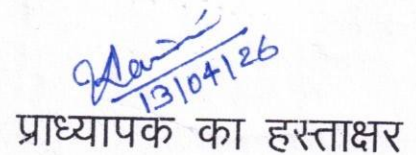 13/04/26
प्राध्यापक का हस्ताक्षर